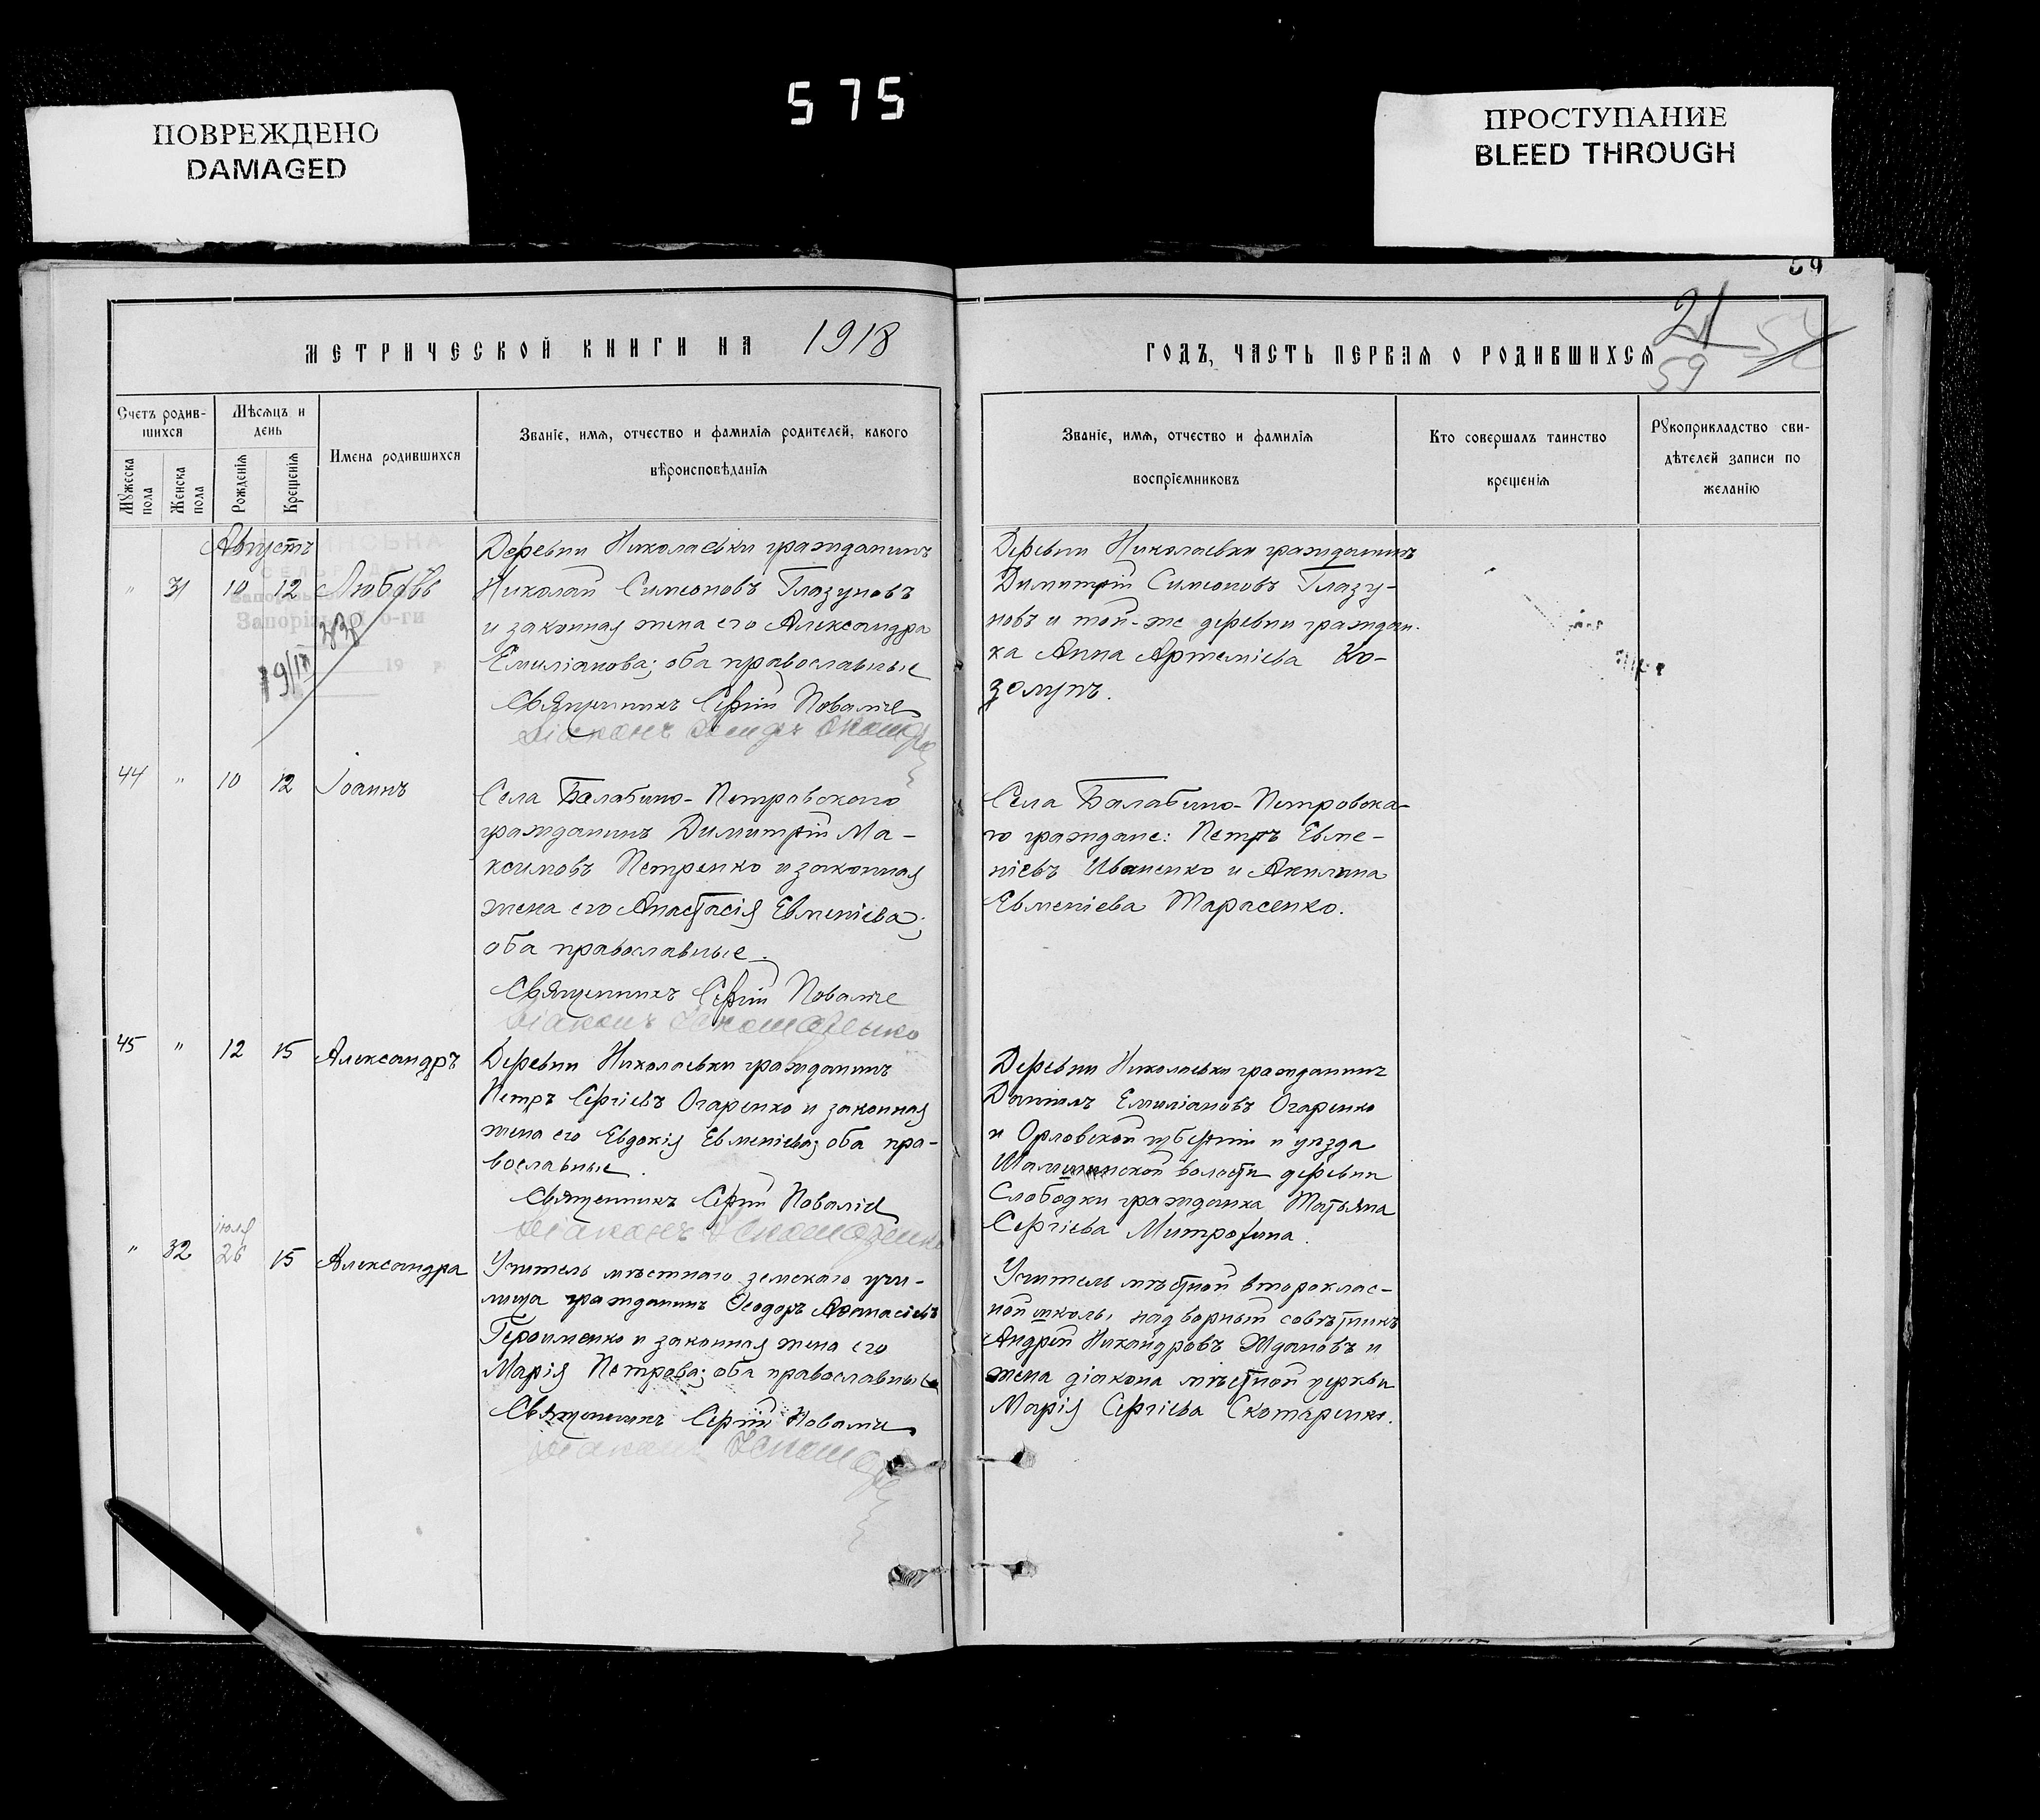 575
ПОВРЕЖДЕНО
DAMAGED
ПРОСТУПАНИЕ
BLEED THROUGH
МЕТРИЧЕСКОЙ КНИГИ НА 1918
Счетъ родив-
шихся
Мѣсяцъ и
день
Имена родившихся
Званіе, имя, отчество и фамилія родителей, какого
вѣроисповѣданія
Мужеска
пола
Женска
пола
Рожденія
Крещенія
Августъ
" 31 10 12 Любовь
Деревни Николаевки гражданинъ
Николай Симеоновъ Глазуновъ
и законная жена его Александра
Емиліанова; оба православные
Священникъ Сергій
Діаконъ
44 " 10 12 Іоаннъ
Села Балабино-Петровскаго
гражданинъ Димитрій Ма-
ксимовъ Петренко и законная
жена его Анастасія Евменіева;
оба православные.
Священникъ Сергій
Діаконъ
45 " 12 15 Александръ
Деревни Николаевки гражданинъ
Петръ Сергіевъ Огаренко и законная
жена его Евдокія Евменіева; оба пра-
вославные.
Священникъ Сергій
Діаконъ
" 32 іюля 26 15 Александра
Учитель мѣстнаго земскаго учи-
лища гражданинъ Ѳеодоръ Аѳанасіевъ
Герасименко и законная жена его
Марія Петрова; оба православные
Священникъ Сергій
Діаконъ
59
21
59
54
ГОДЪ, ЧАСТЬ ПЕРВАЯ О РОДИВШИХСЯ
Званіе, имя, отчество и фамилія
воспріемниковъ
Кто совершалъ таинство
крещенія
Рукоприкладство сви-
дѣтелей записи по
желанію
Деревни Николаевки гражданинъ
Димитрій Симеоновъ Глазу-
новъ и той-же деревни граждан-
ка Анна Артеміева Ко-
золупъ.
Села Балабино-Петровска-
го граждане: Петръ Евме-
ніевъ Иваненко и Акилина
Евменіева Тарасенко.
Деревни Николаевки гражданинъ
Даніилъ Емиліановъ Огаренко
и Орловской губерніи и уѣзда
волости деревни
Слободки гражданка Татьяна
Сергіева Митрофина.
Учитель мѣстной второклас-
ной школы, надворный совѣтникъ
Андрей Никандровъ Ждановъ и
жена діакона мѣстной церкви
Марія Сергіева Скотаренко.